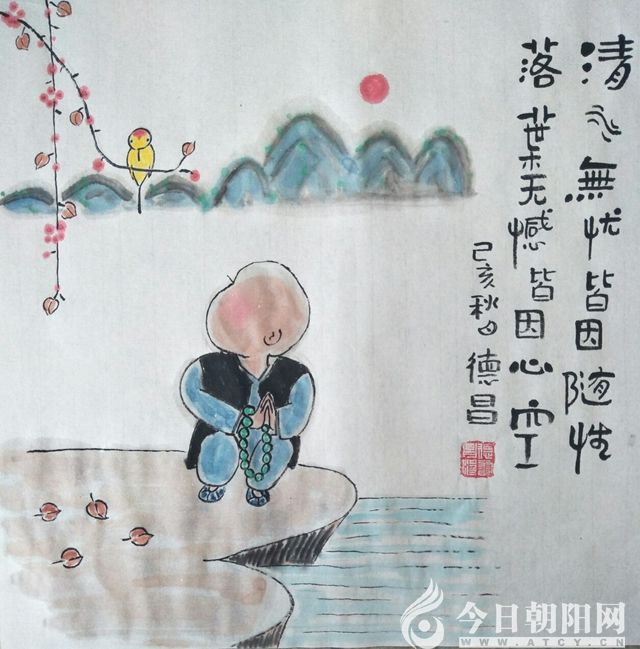 清水無忧皆因随性
落葉无憾皆因心空
己亥秋日德昌
今日朝阳网
WWW.ATCY.CN